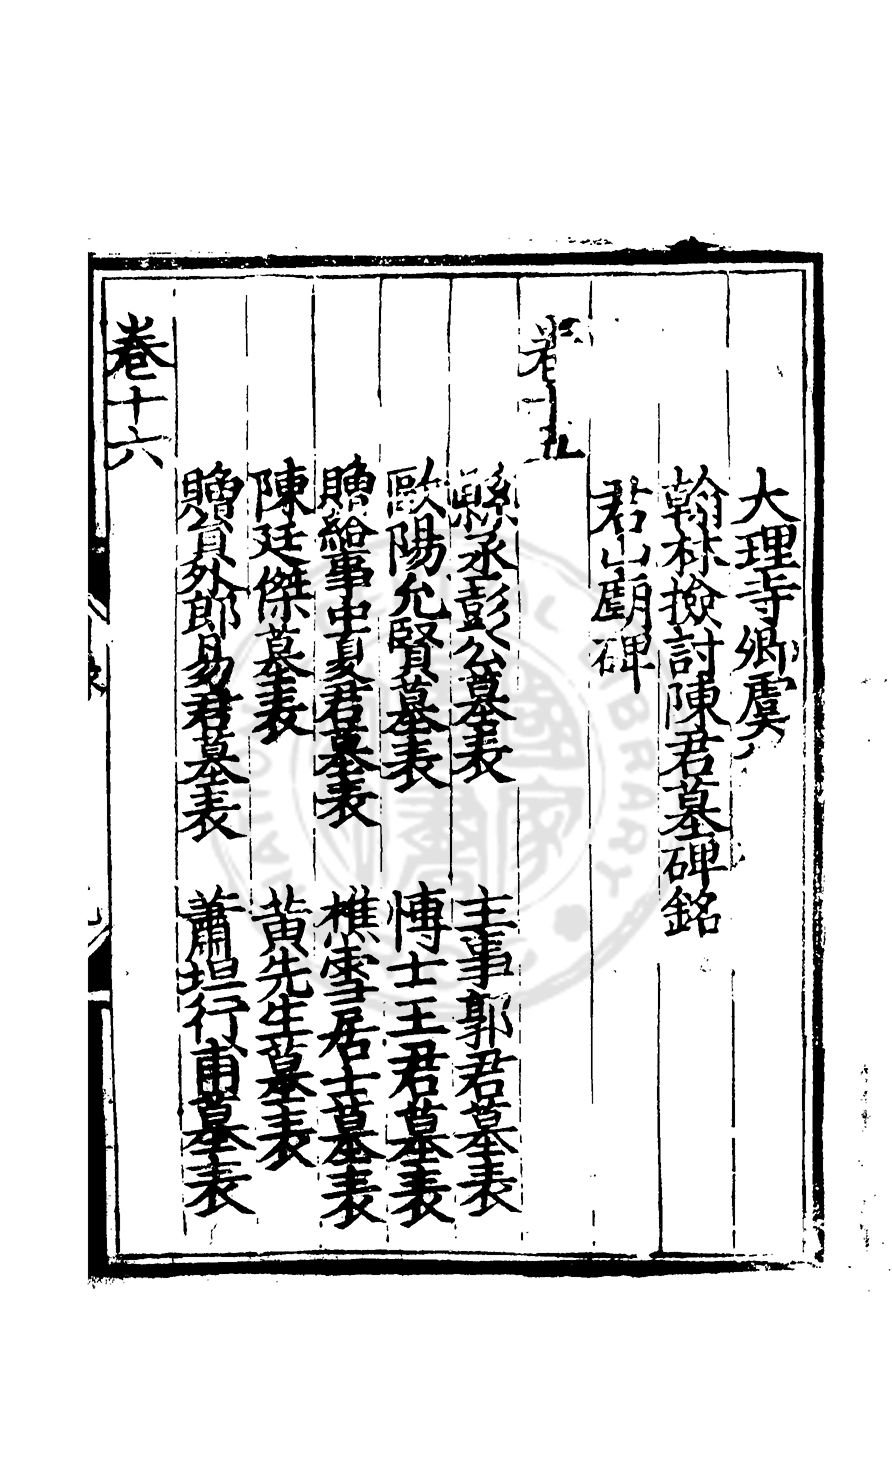 大理寺卿虞
翰林撿討陳君墓碑銘
君山廟碑
卷十五
縣丞彭公墓表 主事郭君墓表
歐陽允賢墓表 博士王君墓表
贈給事中夏君墓表 樵雪居士墓表
陳廷傑墓表 黃先生墓表
贈員外郎易君墓表 蕭坦行甫墓表
卷十六